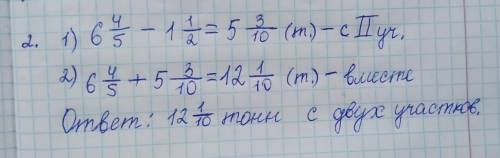 2. 1) 6 4/5 - 1 1/2 = 5 3/10 (т.) - с II уч.
2) 6 4/5 + 5 3/10 = 12 1/10 (т.) - вместе
Ответ: 12 1/10 тонн с двух участков.